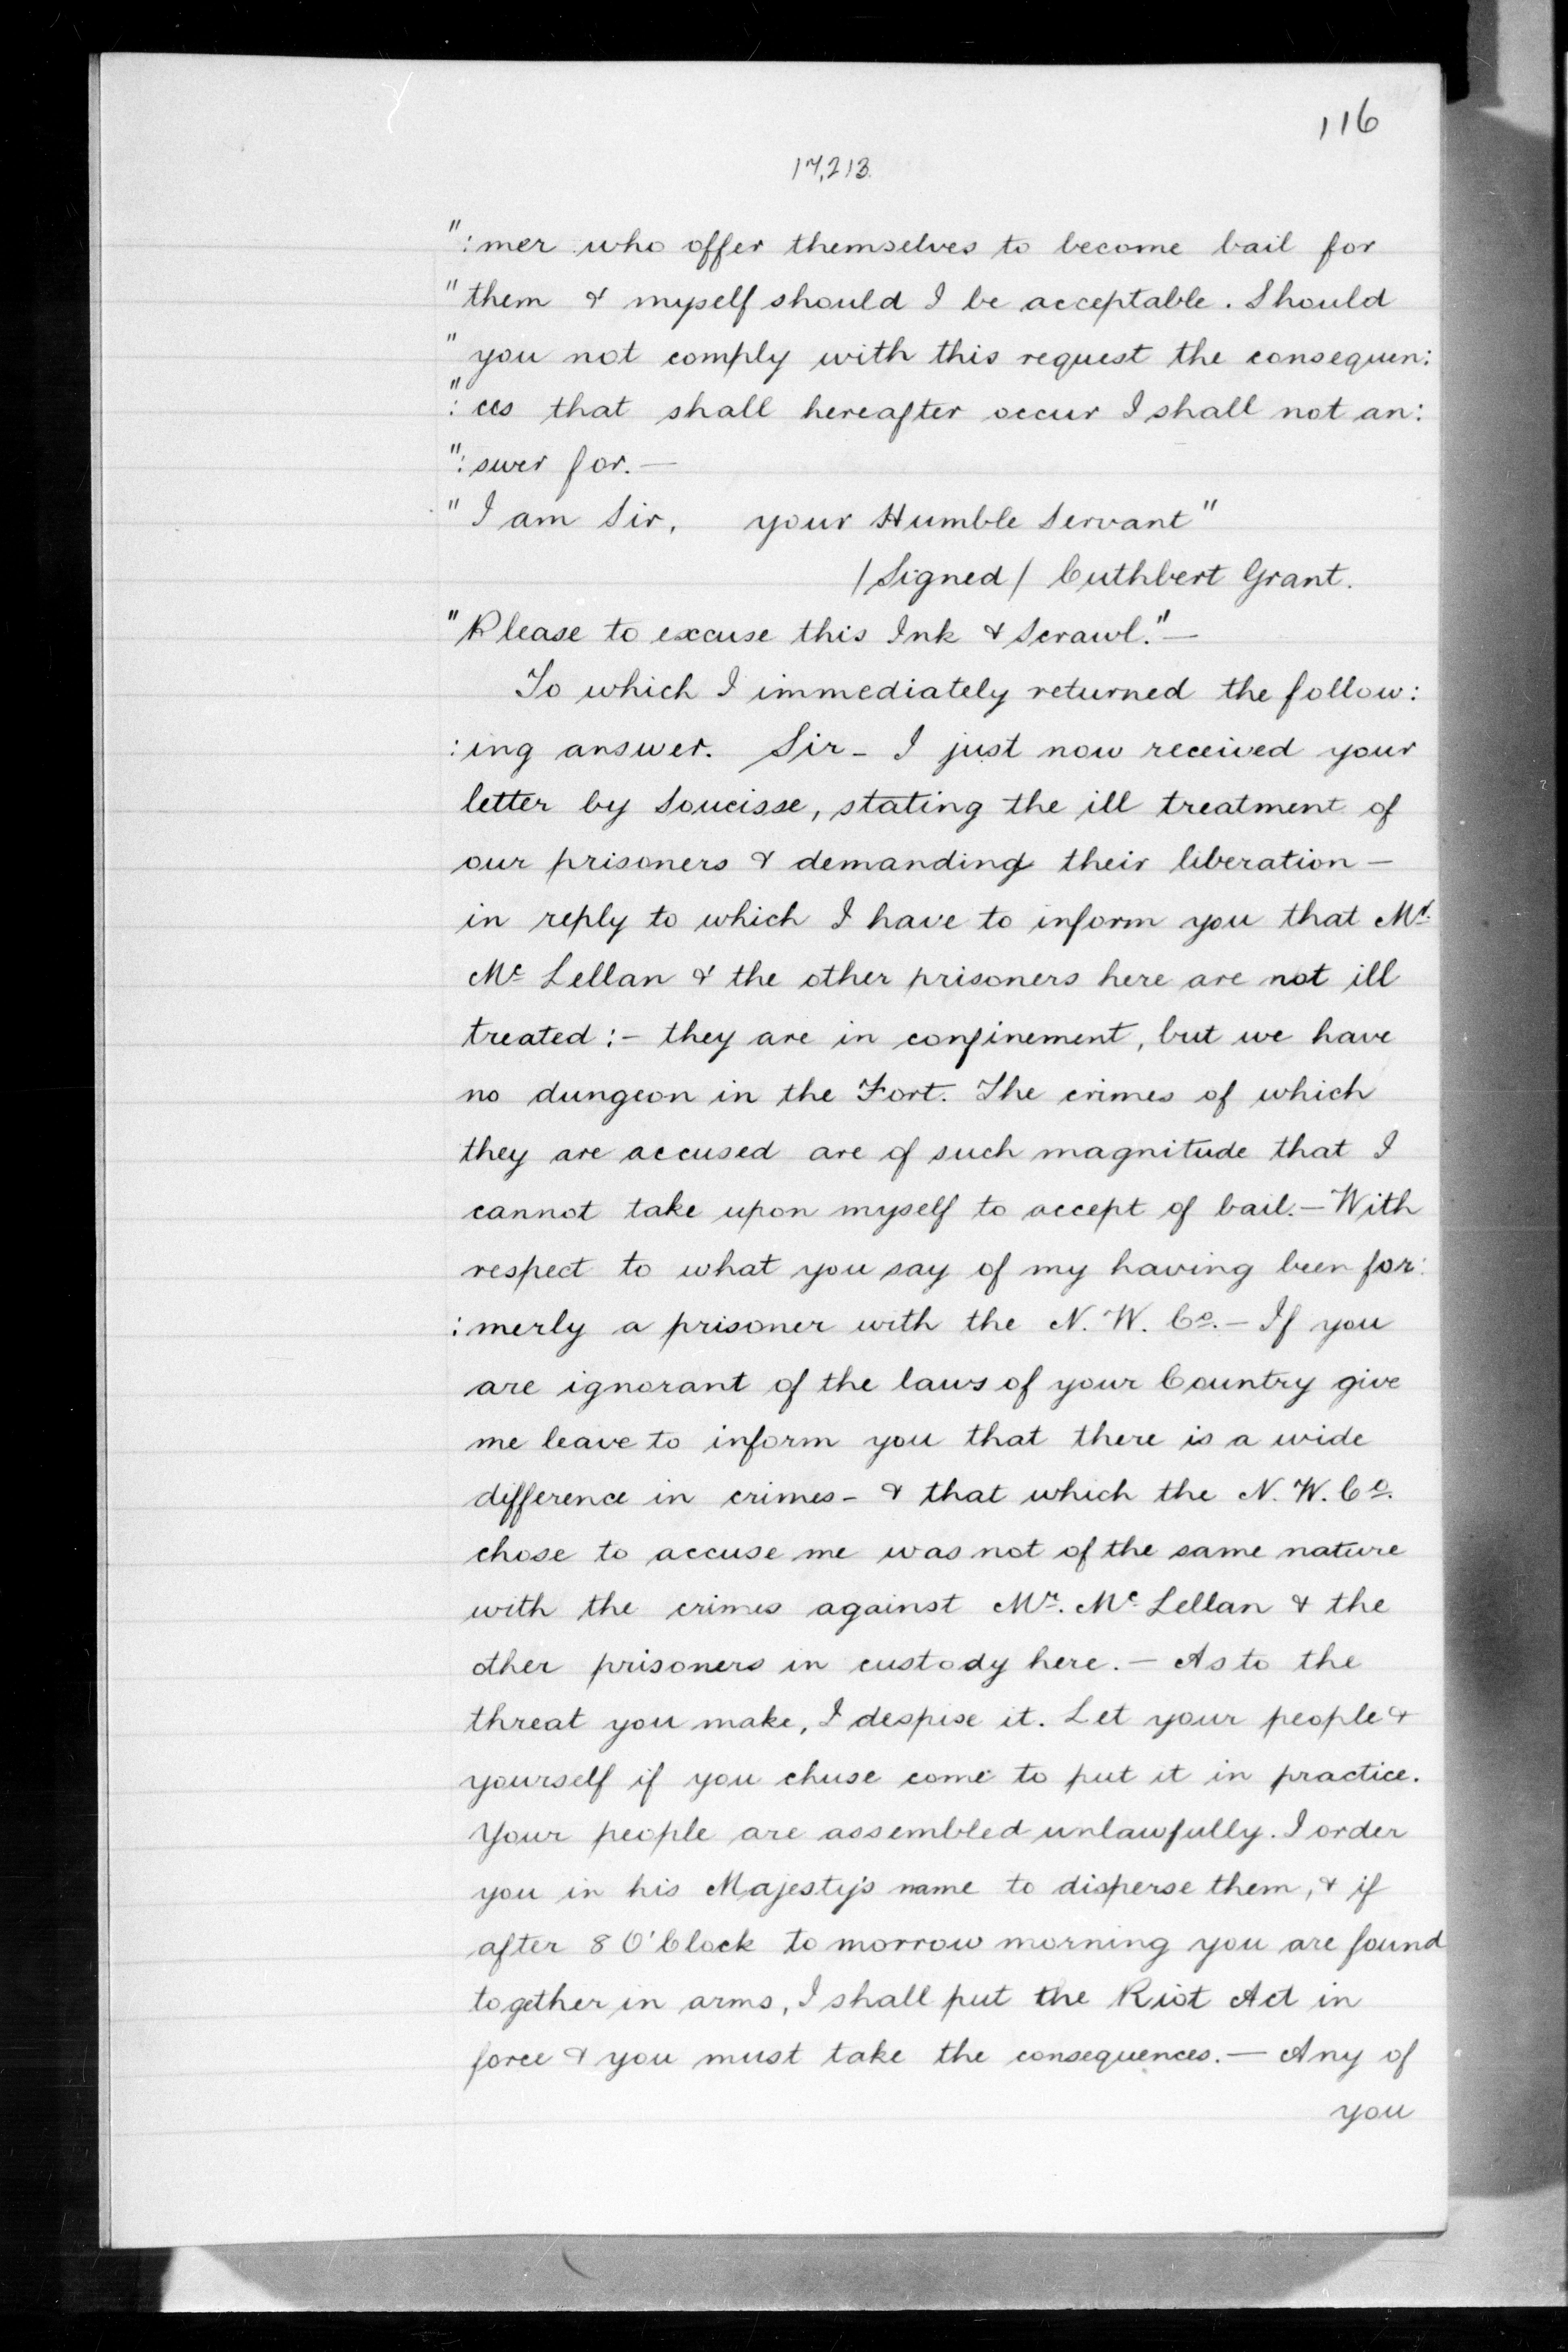 116
17,213.
":mer who offer themselves to become bail for
"them & myself should I be acceptable. Should
"you not comply with this request the consequen:
":ces that shall hereafter occur I shall not an:
":swer for.—
"I am Sir, your Humble Servant"
/Signed/ Cuthbert Grant.
"Please to excuse this Ink & Scrawl."—
To which I immediately returned the follow:
:ing answer. Sir- I just now received your
letter by Soucisse, stating the ill treatment of
our prisoners & demanding their liberation —
in reply to which I have to inform you that Mr.
Mc Lellan & the other prisoners here are not ill
treated:- they are in confinement, but we have
no dungeon in the Fort. The crimes of which
they are accused are of such magnitude that I
cannot take upon myself to accept of bail.— With
respect to what you say of my having been for:
:merly a prisoner with the N. W. Co.— If you
are ignorant of the laws of your Country give
me leave to inform you that there is a wide
difference in crimes- & that which the N. W. Co.
chose to accuse me was not of the same nature
with the crimes against Mr. Mc Lellan & the
other prisoners in custody here.— As to the
threat you make, I despise it. Let your people &
yourself if you chuse come to put it in practice.
Your people are assembled unlawfully. I order
you in his Majesty's name to disperse them, & if
after 8 O'Clock to morrow morning you are found
together in arms, I shall put the Riot Act in
force & you must take the consequences.— Any of
you